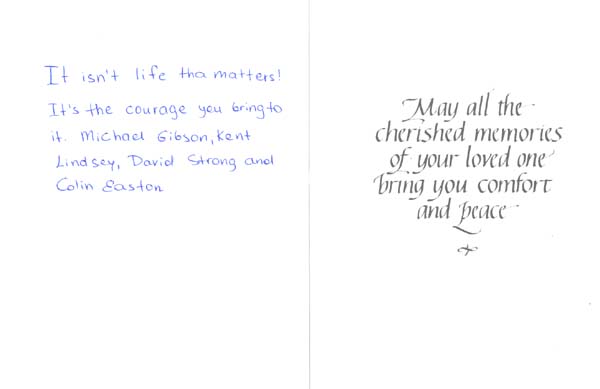 It isn't life tha matters!
It's the courage you bring to
it. Michael Gibson, Kent
Lindsey, David Strong and
Colin Easton
May all the
cherished memories
of your loved one
bring you comfort
and peace